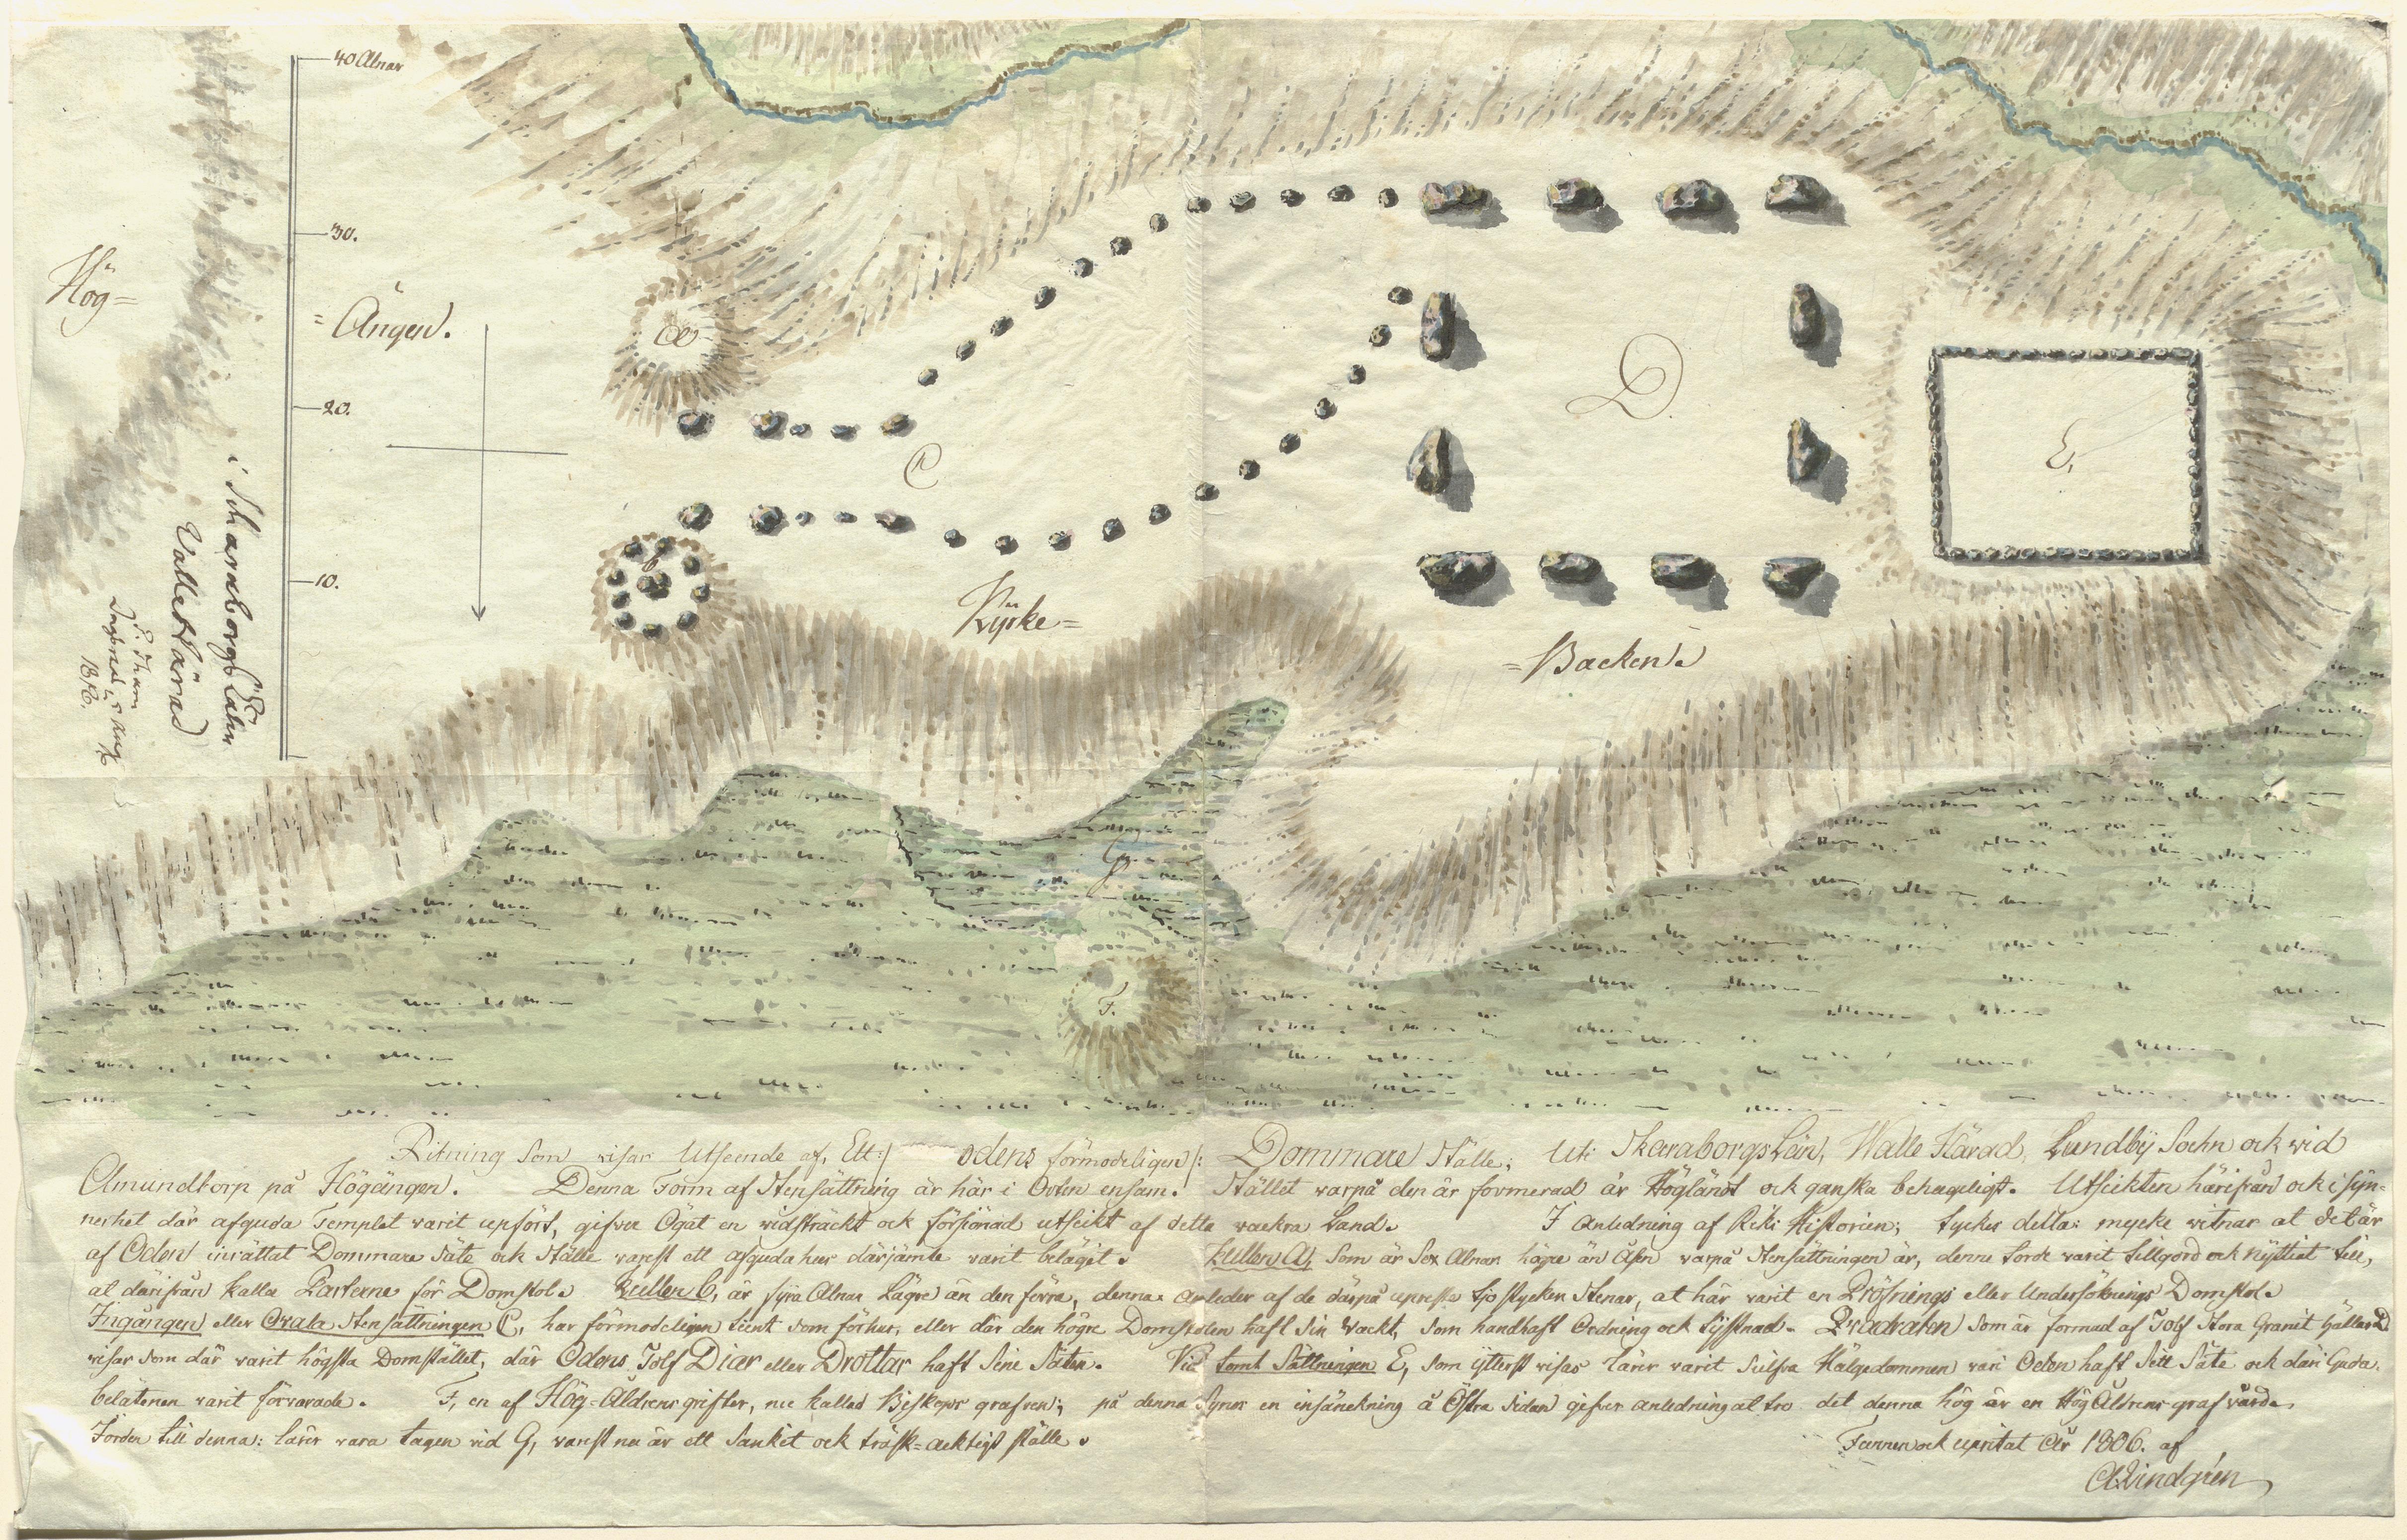 40 Alnar
30.
20.
10.
Hög=
=Ängen.
i Skaraborgs Lähn
Valle Härad
P. Tham
Dagsnäs
A
b
C
D.
E,
Kyrke=
=Backen.
G
F.
Ritning Som visar Utseende af, Ett:/ Odens förmodeligen/: Dommare Ställe; Uti Skaraborgs Län, Walle Härad, Lundby Sochn ock wid
Amundtorp på Högängen. Denna Form af Stensättning är här i Orten ensam. Stället varpå den är formerad är Högländt ock ganska behageligt. Utsickten härifrån ock i syn-
nerhet där afguda Templet varit upfört, gifver Ögat en widsträckt ock förskönad utsickt af detta vackra Land. I Anledning af Riks Historien; tyckes detta: mycke witnar at det är
af Oden inrättat Dommare Säte ock Ställe varest ett afguda hus därjämte varit beläget. Kullen A, Som är Sex Alnar högre än Åsen varpå Stensättningen är, denne torde varit tillgord ock nyttiat till,
at därifrån kalla Parterne för Domstol. Kullen b, är fyra Alnar Lägre än den förra, denna anleder af de därpå upreste tjo stycken Stenar, at här varit en Pröfnings eller Undersöknings Domstol.
Ingången eller Ovala Stensättningen C, har förmodeligen tient som förhus, eller där den högre Domstolen haft Sin Wackt, Som handhaft Ordning ock tysstnad. Qvadraten Som är formad af Tolf Stora Granit hällar D
visar Som där varit högsta Domstället, där Odens Tolf Diar eller Drottar haft Sine Säten. Vid tomt Sättningen E, Som ytterst visas lärer varit Sielfva Hälgedommen vari Oden haft Sitt Säte ock däri Guda-
belätenen varit förvarade. F, en af Hög-Åldrens grifter, nu kallad Biskops grafven; på denna Synes en insänckning å Östra Sidan gifver anledning at tro det denna hög är en Hög Åldrens graf vård.
Jorden till denna: lärer vara tagen vid G, varest nu är ett Sankt ock träsk-acktigt ställe.
Funnen ock upritat År 1806. af
A Lindgren